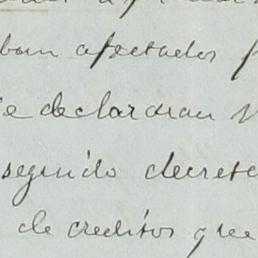 ban afectados
se declarara
segundo decreto
de creditos que